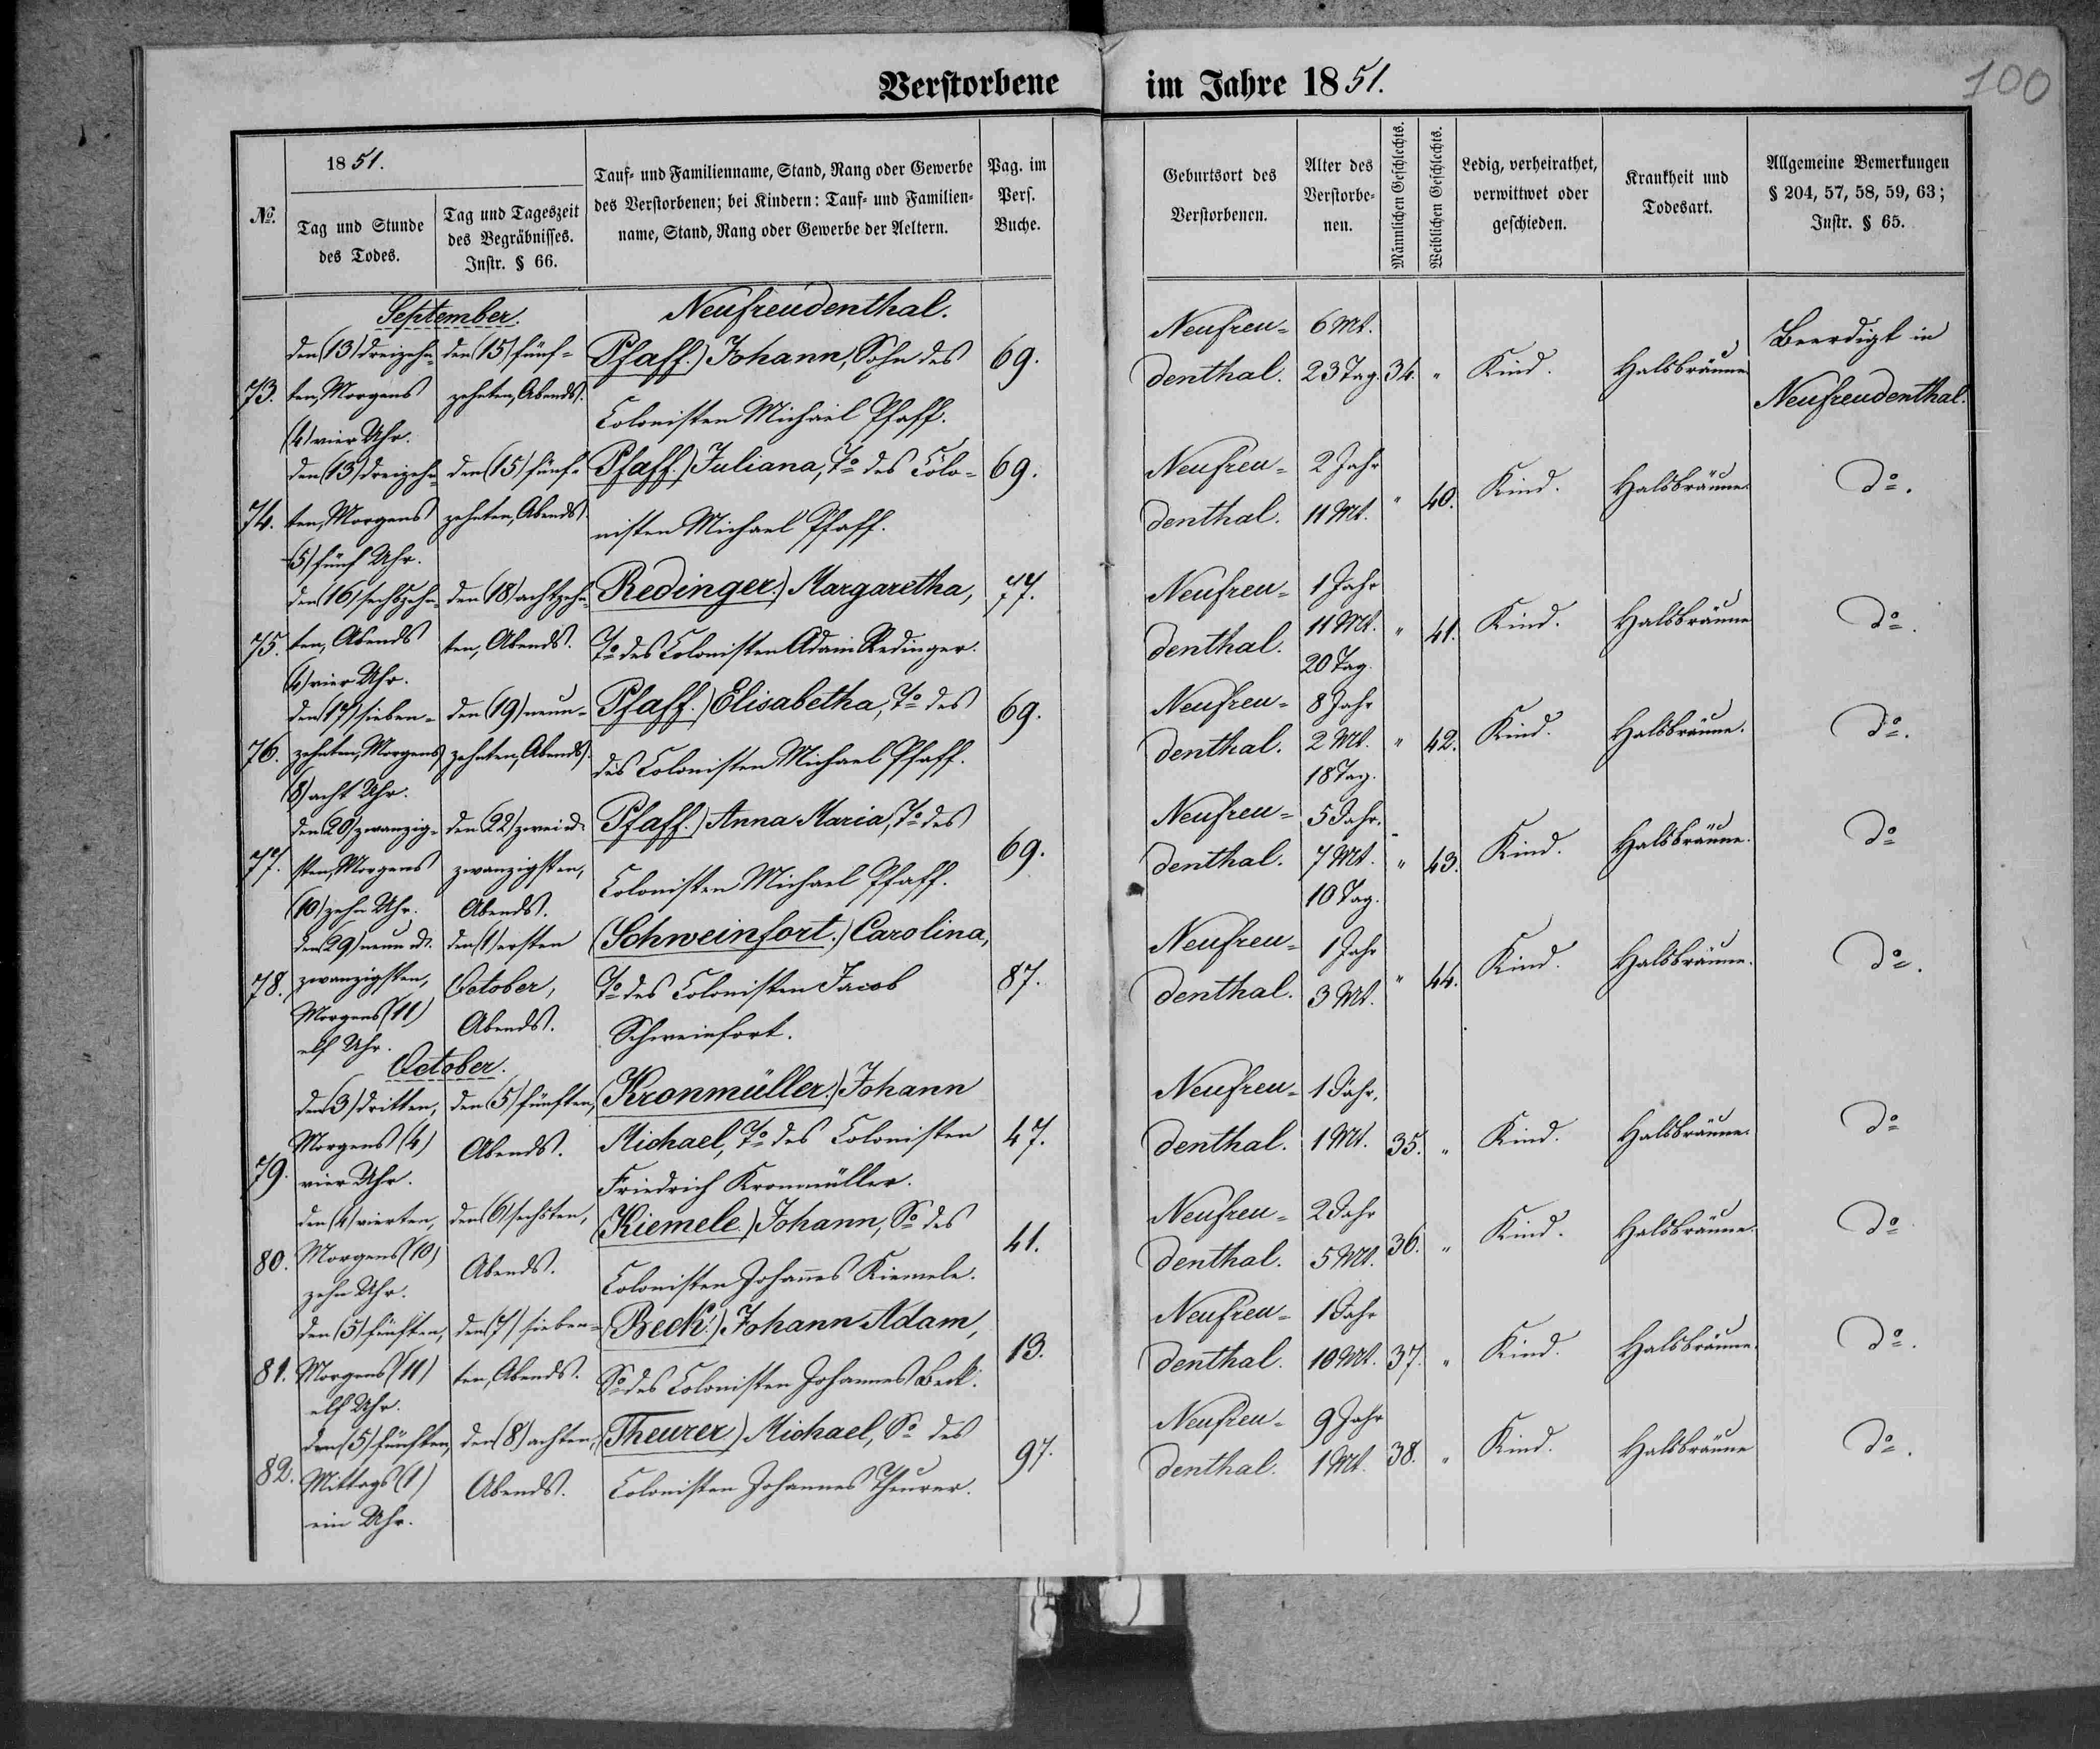 Verstorbene im Jahre 1851.
100
No.
1851.
Tag und Stunde
des Todes.
Tag und Tageszeit
des Begräbnisses.
Instr. § 66.
Tauf- und Familienname, Stand, Rang oder Gewerbe
des Verstorbenen; bei Kindern: Tauf- und Familien-
name, Stand, Rang oder Gewerbe der Aeltern.
Pag. im
Pers.
Buche.
Geburtsort des
Verstorbenen.
Alter des
Verstorbe-
nen.
Männlichen Geschlechts.
Weiblichen Geschlechts.
Ledig, verheirathet,
verwittwet oder
geschieden.
Krankheit und
Todesart.
Allgemeine Bemerkungen
§ 204, 57, 58, 59, 63;
Instr. § 65.
September.
Neufreudenthal.
73.
den (13) dreizehn-
ten, Morgens
(4) vier Uhr.
den (15) fünf-
zehnten, Abends.
Pfaff.) Johann, Sohn des
Colonisten Michael Pfaff.
69.
Neufreu-
denthal.
6 Mt.
23 Tag.
34.
"
Kind.
Halsbräune
Beerdigt in
Neufreudenthal.
74.
den (13) dreizehn-
ten, Morgens
(5) fünf Uhr.
den (15) fünf-
zehnten, Abends.
Pfaff.) Juliana, To des Colo-
nisten Michael Pfaff.
69.
Neufreu-
denthal.
2 Jahr
11 Mt.
"
40.
Kind.
Halsbräune.
do.
75.
den (16) sechszehn-
ten, Abends
(4) vier Uhr.
den (18) achtzehn-
ten, Abends.
Redinger.) Margaretha,
To des Colonisten Adam Redinger.
77.
Neufreu-
denthal.
1 Jahr
11 Mt.
20 Tag.
"
41.
Kind.
Halsbräune
do.
76.
den (17) sieben-
zehnten, Morgens
(8) acht Uhr.
den (19) neun-
zehnten, Abends.
Pfaff.) Elisabetha, To des
des Colonisten Michael Pfaff.
69.
Neufreu-
denthal.
8 Jahr
2 Mt.
18 Tag.
"
42.
Kind.
Halsbräune.
do.
77.
den (20) zwanzig-
sten, Morgens
(10) zehn Uhr.
den (22) zwei ud.
zwanzigsten,
Abends.
Pfaff.) Anna Maria, To des
Colonisten Michael Pfaff.
69.
Neufreu-
denthal.
5 Jahr.
7 Mt.
10 Tag.
"
43.
Kind.
Halsbräune.
do
78.
den (29) neun ud.
zwanzigsten,
Morgens (11)
elf Uhr.
den (1) ersten
October,
Abends.
(Schweinfort.) Carolina,
To des Colonisten Jacob
Schweinfort.
87.
Neufreu-
denthal.
1 Jahr
3 Mt.
"
44.
Kind.
Halsbräune.
do.
October.
79.
den (3) dritten,
Morgens (4)
vier Uhr.
den (5) fünften,
Abends.
(Kronmüller.) Johann
Michael, To des Colonisten
Friedrich Kronmüller.
47.
Neufreu-
denthal.
1 Jahr,
1 Mt.
35.
"
Kind.
Halsbräune.
do
80.
den (4) vierten,
Morgens (10)
zehn Uhr.
den (6) sechsten,
Abends.
(Kiemele.) Johann, So des
Colonisten Johannes Kiemele.
41.
Neufreu-
denthal.
2 Jahr
5 Mt.
36.
"
Kind.
Halsbräune.
do
81.
den (5) fünften,
Morgens (11)
elf Uhr.
den (7) sieben-
ten, Abends.
(Beck.) Johann Adam,
So des Colonisten Johannes Beck.
13.
Neufreu-
denthal.
1 Jahr
10 Mt.
37.
"
Kind.
Halsbräune.
do.
82.
den (5) fünften,
Mittags (1)
ein Uhr.
den (8) achten,
Abends.
(Theurer) Michael, So des
Colonisten Johannes Theurer.
97.
Neufreu-
denthal.
9 Jahr
1 Mt.
38.
"
Kind.
Halsbräune
do.